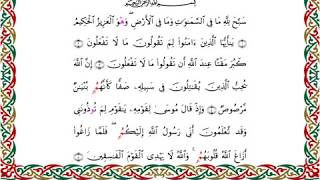 بسم الله الرحمن الرحيم
سَبَّحَ لِلَّهِ مَا فِى السَّمَٰوَٰتِ وَمَا فِى الْأَرْضِ ۖ وَهُوَ الْعَزِيزُ الْحَكِيمُ
يَٰٓأَيُّهَا الَّذِينَ ءَامَنُوا لِمَ تَقُولُونَ مَا لَا تَفْعَلُونَ
كَبُرَ مَقْتًا عِندَ اللَّهِ أَن تَقُولُوا مَا لَا تَفْعَلُونَ إِنَّ اللَّهَ
يُحِبُّ الَّذِينَ يُقَٰتِلُونَ فِى سَبِيلِهِ صَفًّا كَأَنَّهُم بُنْيَٰنٌ
مَّرْصُوصٌ وَإِذْ قَالَ مُوسَىٰ لِقَوْمِهِ يَٰقَوْمِ لِمَ تُؤْذُونَنِى
وَقَد تَّعْلَمُونَ أَنِّى رَسُولُ اللَّهِ إِلَيْكُمْ ۖ فَلَمَّا زَاغُوا
أَزَاغَ اللَّهُ قُلُوبَهُمْ ۚ وَاللَّهُ لَا يَهْدِى الْقَوْمَ الْفَٰسِقِينَ